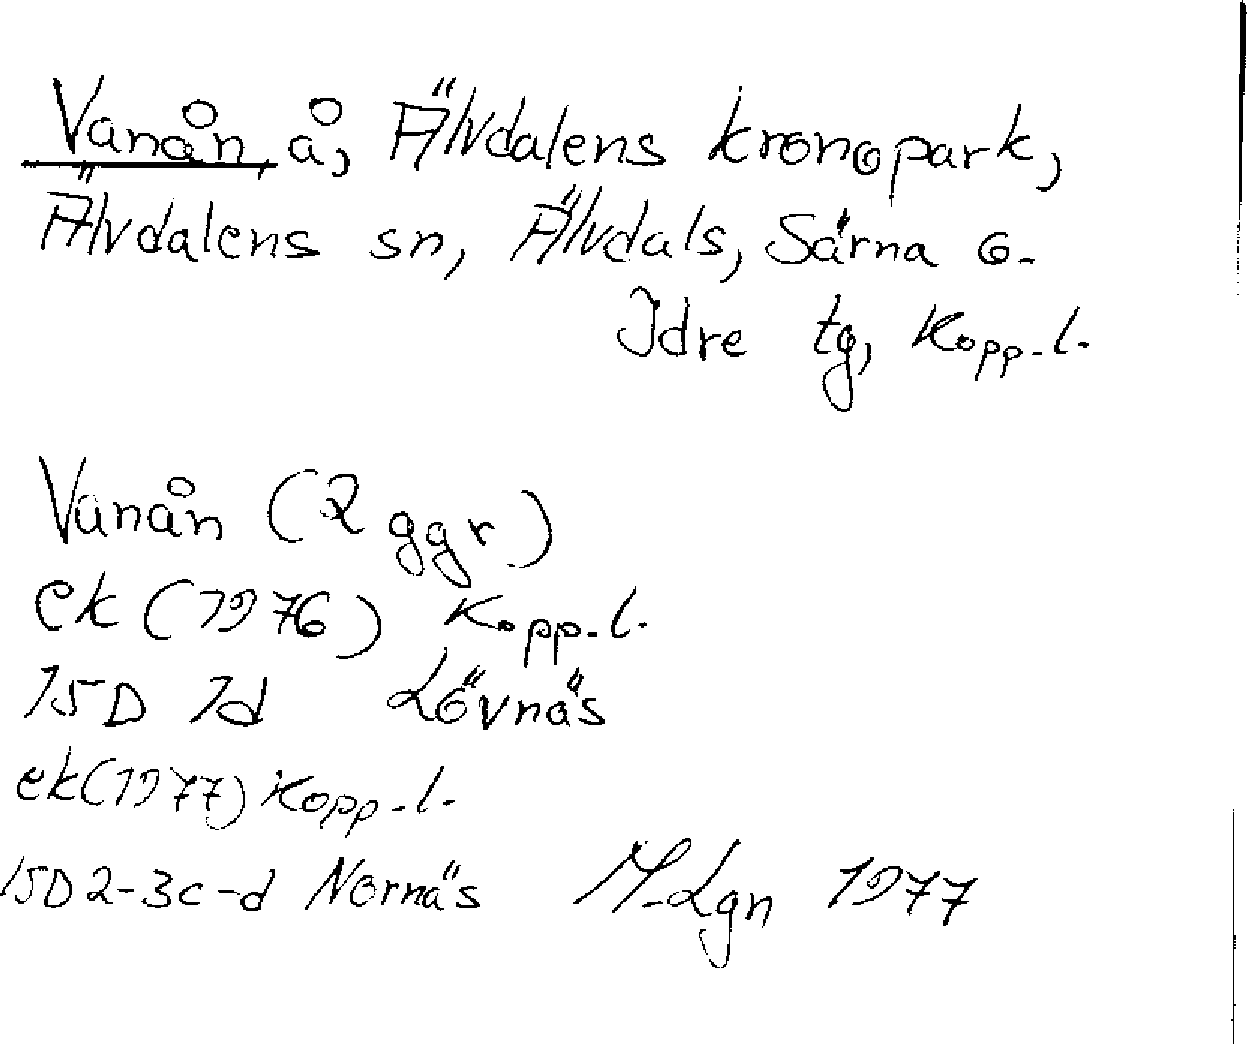 Vanån, å, Älvdalens kronopark,
Älvdalens sn, Älvdals, Särna o.
Idre tg, Kopp. l.
Vanån (2 ggr)
ek (1976) Kopp. l.
15D 1d Lövnäs
ek (1977) Kopp. l.
15D 2-3c-d Nornäs M. Lgn 1977